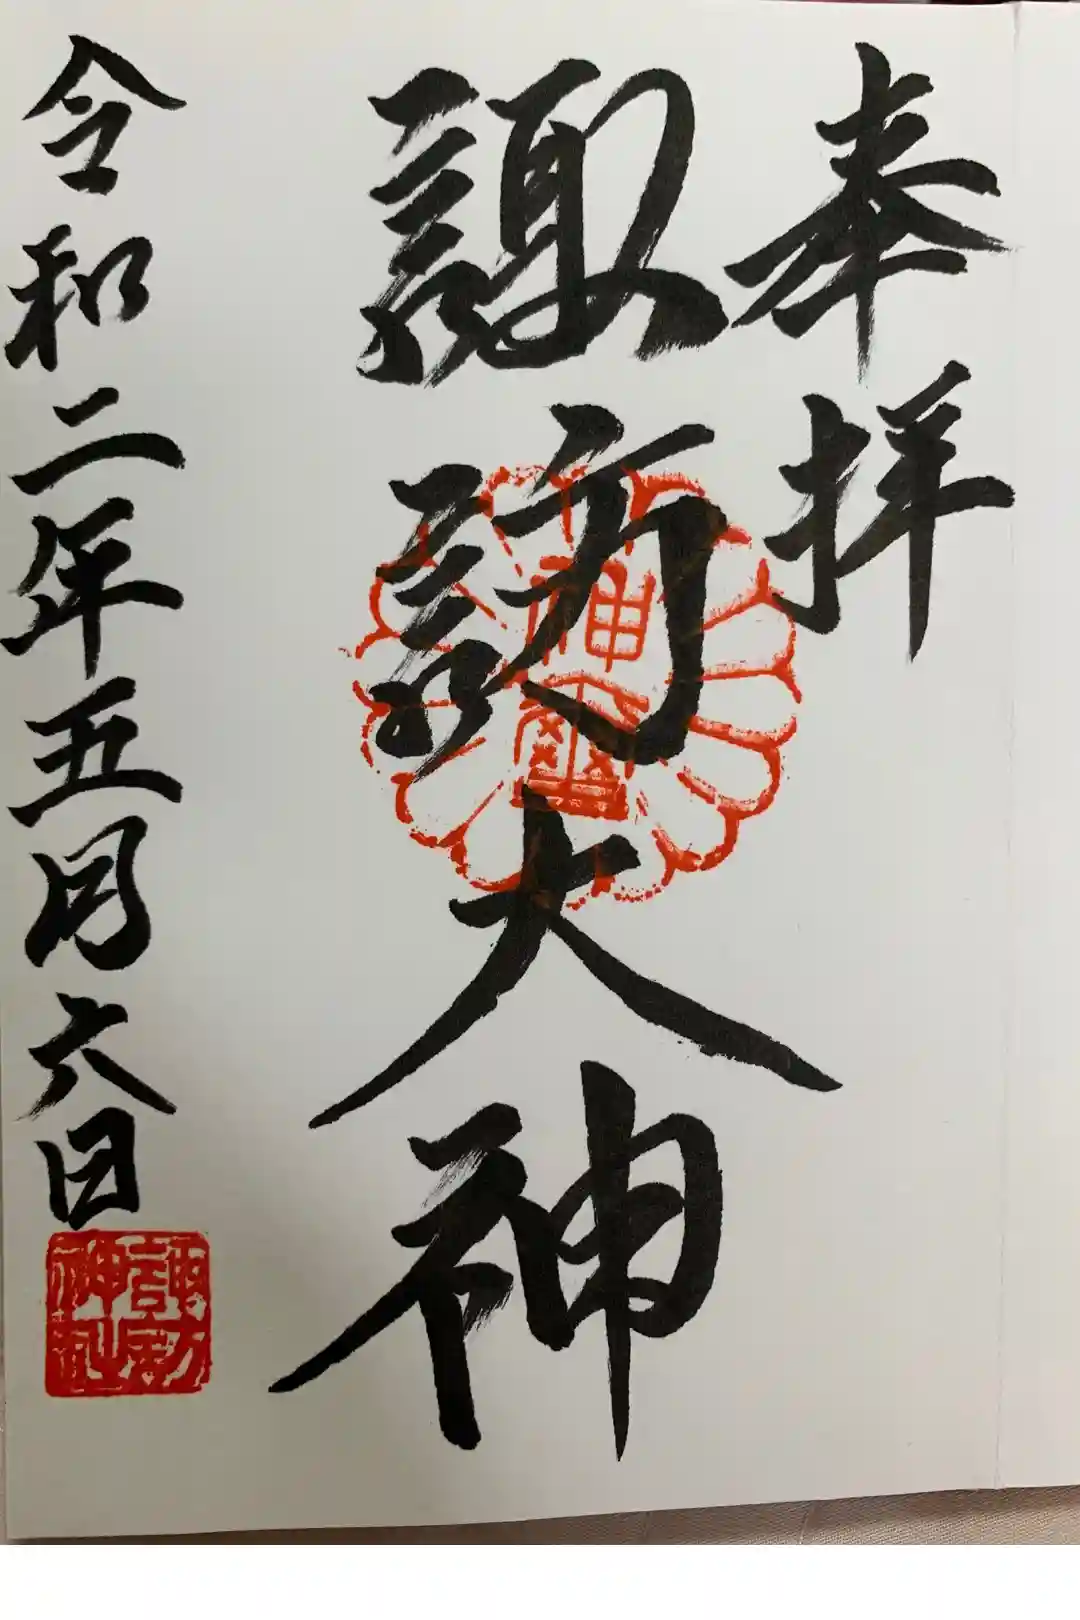 奉拝
諏訪大神
令和二年五月六日
諏訪神社